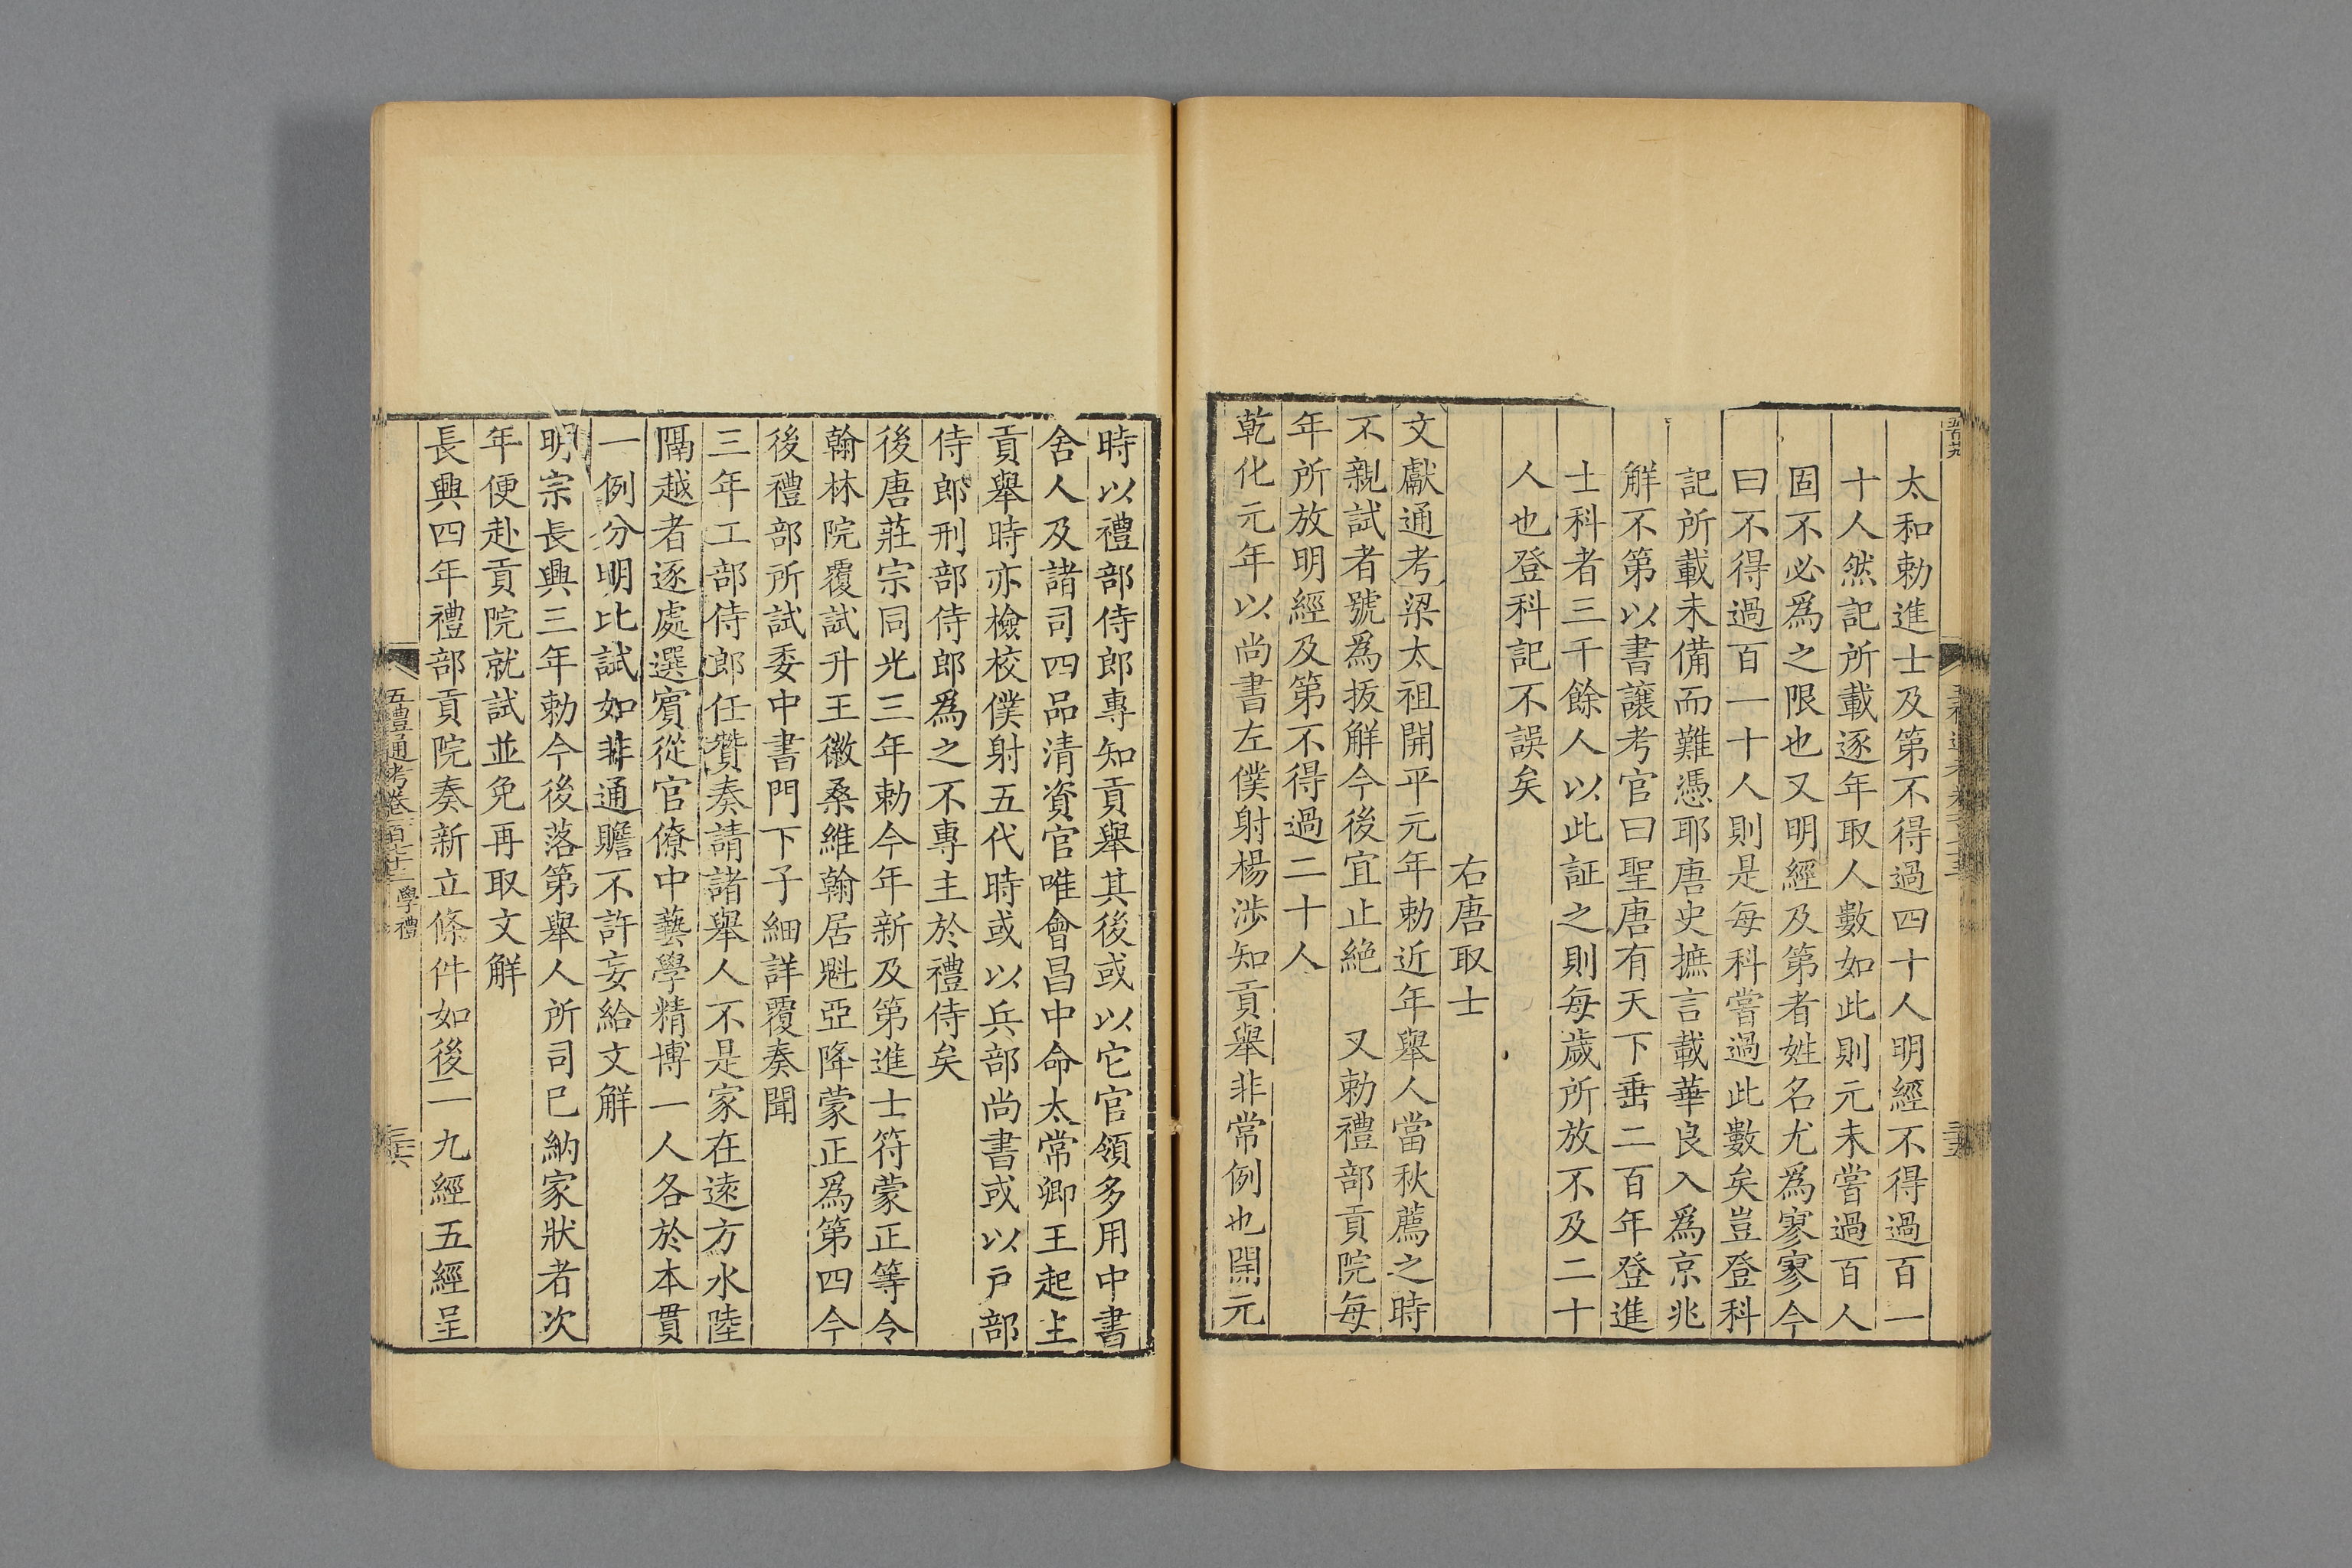 太和勅進士及第不得過四十人明經不得過百一
十人然記所載逐年取人數如此則元未嘗過百人
固不必爲之限也又明經及第者姓名尤爲寥寥今
曰不得過百一十人則是每科嘗過此數矣豈登科
記所載未備而難憑耶唐史摭言載華良入爲京兆
解不第以書讓考官曰聖唐有天下垂二百年登進
士科者三千餘人以此証之則每歲所放不及二十
人也登科記不誤矣
右唐取士
文獻通考梁太祖開平元年勅近年舉人當秋薦之時
不親試者號爲拔解今後宜止絕 又勅禮部貢院每
年所放明經及第不得過二十人
乾化元年以尚書左僕射楊涉知貢舉非常例也開元
時以禮部侍郎專知貢舉其後或以它官領多用中書
舍人及諸司四品清資官唯會昌中命太常卿王起主
貢舉時亦檢校僕射五代時或以兵部尚書或以戶部
侍郎刑部侍郎爲之不專主於禮侍矣
後唐莊宗同光三年勅今年新及第進士符蒙正等令
翰林院覆試升王徹桑維翰居魁亞降蒙正爲第四今
後禮部所試委中書門下子細詳覆奏聞
三年工部侍郎任贊奏請諸舉人不是家在遠方水陸
隔越者逐處選賓從官僚中藝學精博一人各於本貫
一例分明比試如非通贍不許妄給文解
明宗長興三年勅今後落第舉人所司已納家狀者次
年便赴貢院就試並免再取文解
長興四年禮部貢院奏新立條件如後一九經五經呈
五禮通考卷一百七十三 學禮